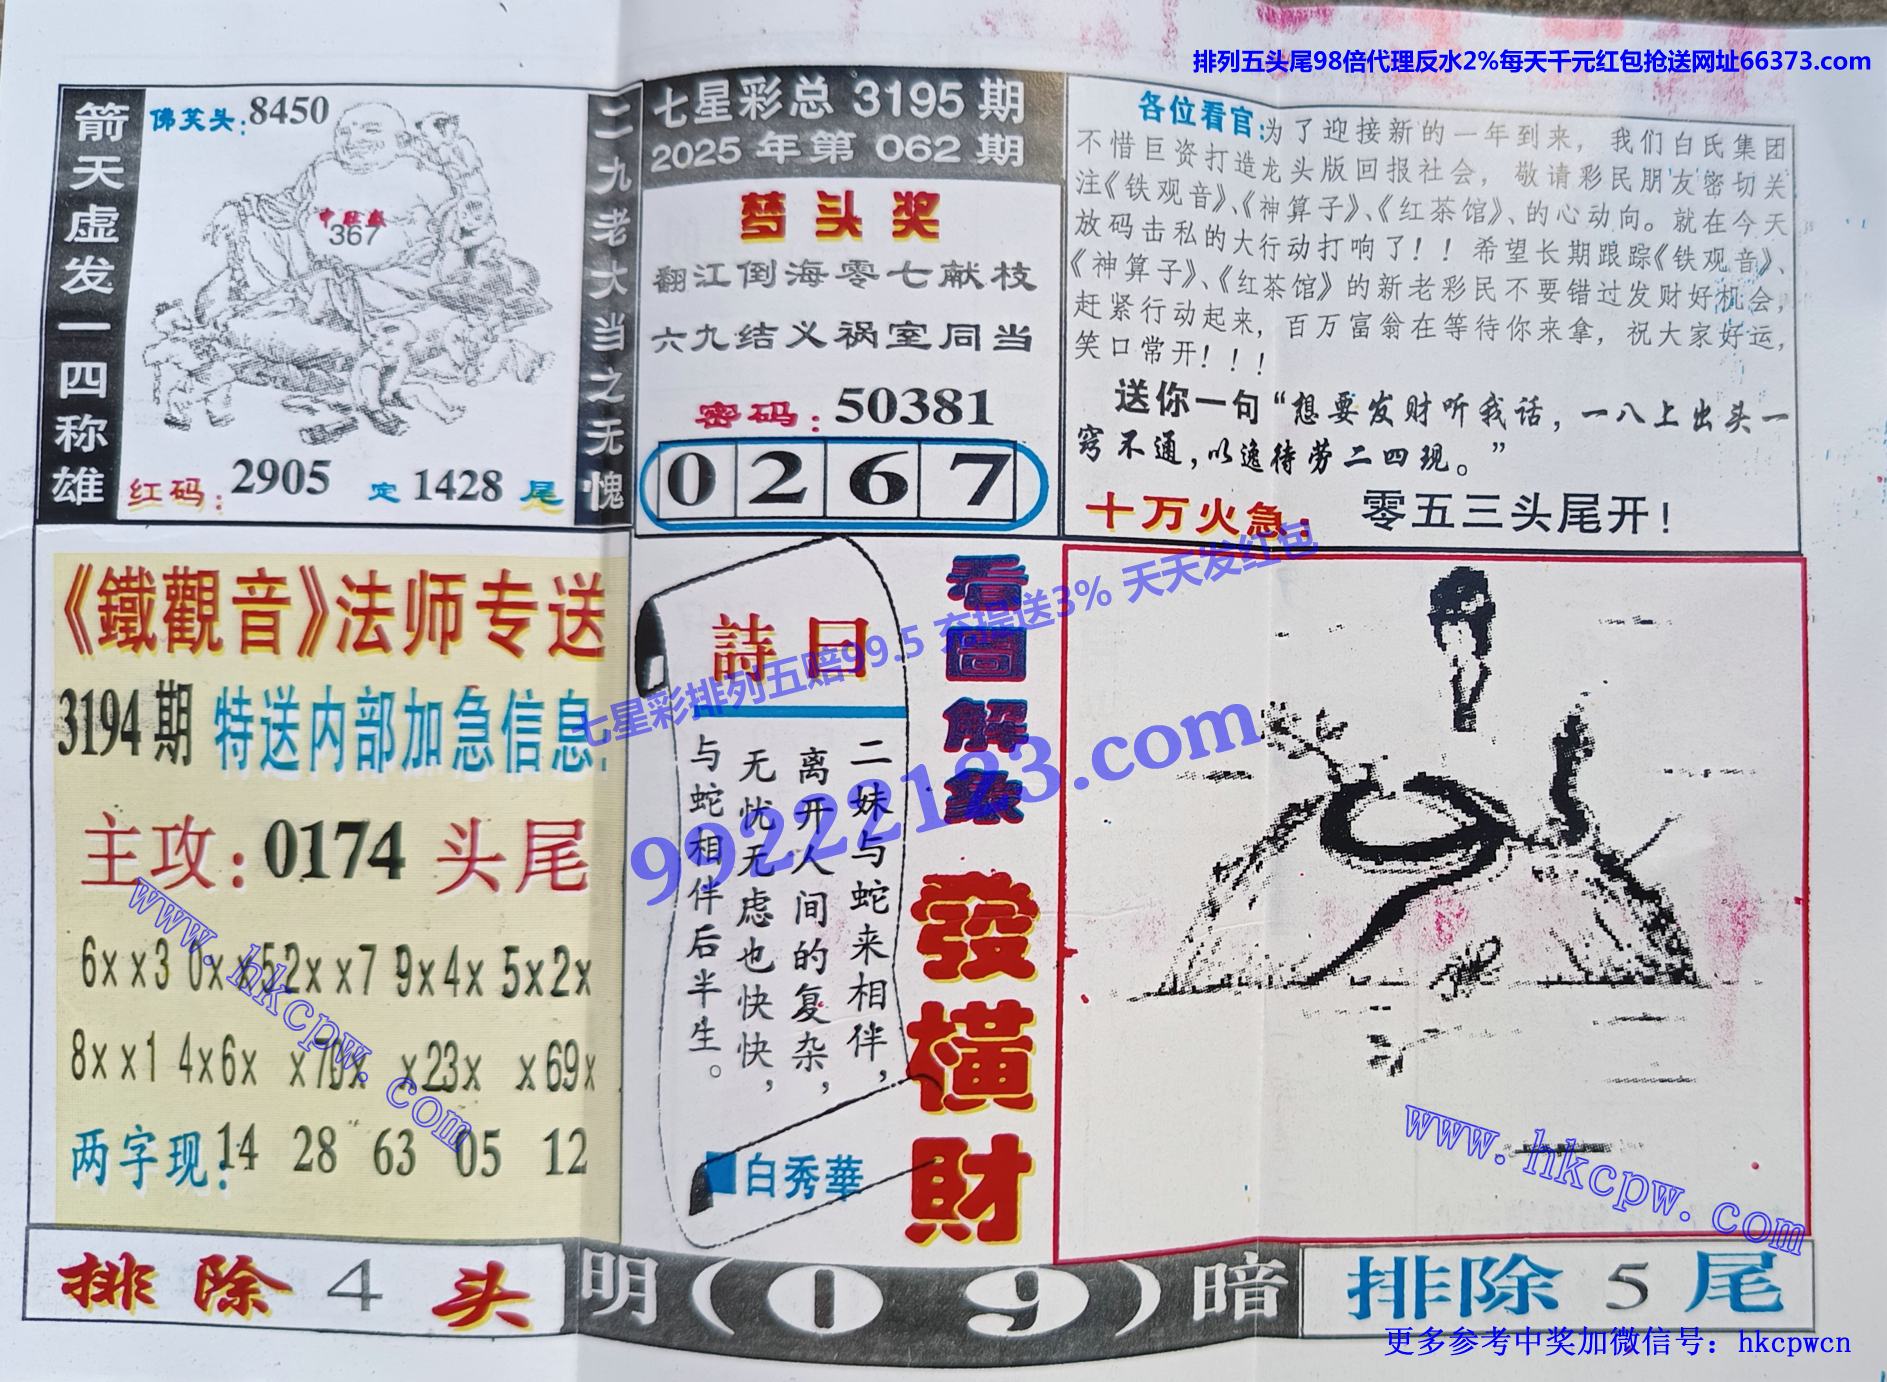 排列五头尾98倍代理反水2%每天千元红包抢送网址66373.com
箭天虚发一四称雄
佛笑头:8450
中肚数
367
红码:2905 定1428尾
二九老大当之无愧
七星彩总3195期
2025年第062期
梦头奖
翻江倒海零七献枝
六九结义祸室同当
密码:50381
0267
各位看官:为了迎接新的一年到来,我们白氏集团
不惜巨资打造龙头版回报社会,敬请彩民朋友密切关
注《铁观音》、《神算子》、《红茶馆》、的心动向。就在今天
放码击私的大行动打响了!!希望长期跟踪《铁观音》、
《神算子》、《红茶馆》的新老彩民不要错过发财好机会,
赶紧行动起来,百万富翁在等待你来拿,祝大家好运,
笑口常开!!!
送你一句“想要发财听我话,一八上出头一
窍不通,以逸待劳二四现。”
十万火急:零五三头尾开!
《鐵觀音》法师专送
3194期 特送内部加急信息:
主攻:0174头尾
6xx3 0xx5 2xx7 9x4x 5x2x
8xx1 4x6x x70x x23x x69x
两字现:14 28 63 05 12
詩曰
二妹与蛇来相伴,
离开人间的复杂,
无忧无虑也快快,
与蛇相伴后半生。
白秀華
看圖解象
發橫財
七星彩排列五赔99.5 充提送3% 天天发红包
99222123.com
www.hkcpw.com
www.hkcpw.com
排除4头
明(09)暗
排除5尾
更多参考中奖加微信号:hkcpwcn